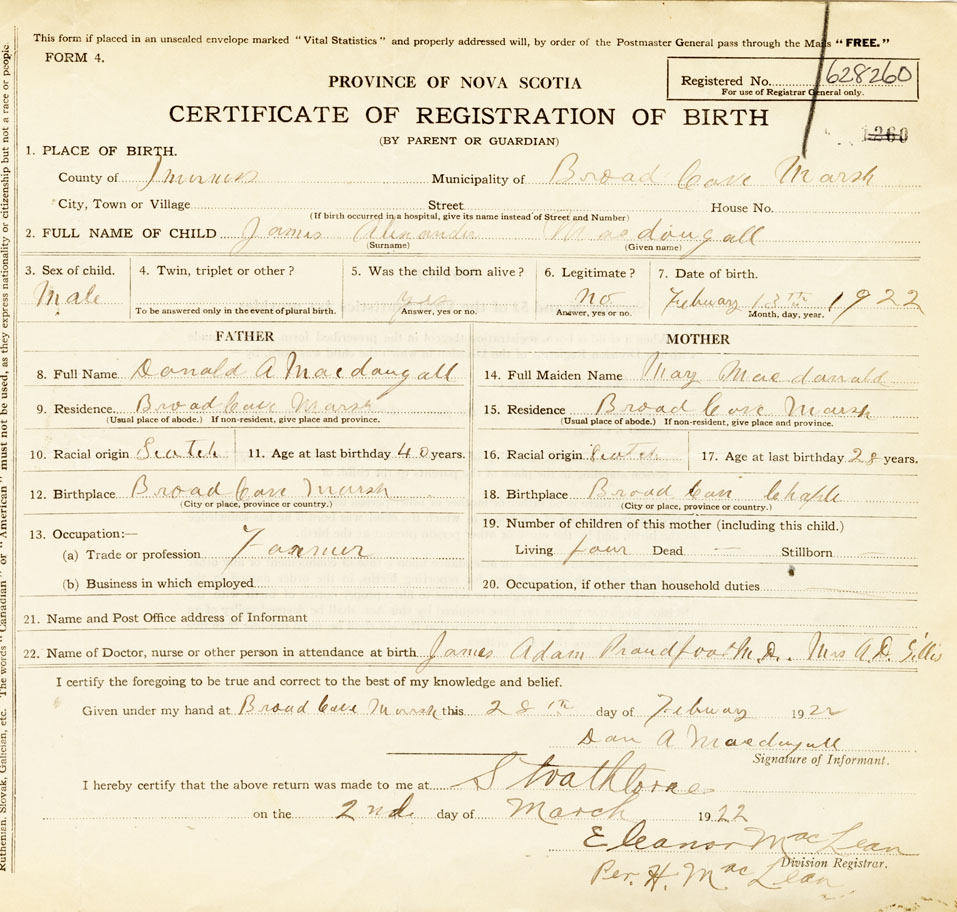 This form if placed in an unsealed envelope marked "Vital Statistics" and properly addressed will, by order of the Postmaster General pass through the Mails "FREE."
FORM 4.
PROVINCE OF NOVA SCOTIA
Registered No. 628260
For use of Registrar General only.
CERTIFICATE OF REGISTRATION OF BIRTH
(BY PARENT OR GUARDIAN)
1260
1. PLACE OF BIRTH.
County of Inverness Municipality of Broad Cove Marsh
City, Town or Village Street House No.
(If birth occurred in a hospital, give its name instead of Street and Number)
2. FULL NAME OF CHILD James Alexander Macdougall
(Surname) (Given name)
3. Sex of child. 4. Twin, triplet or other? 5. Was the child born alive? 6. Legitimate? 7. Date of birth.
Male yes no Febuary 13th 1922
To be answered only in the event of plural birth. Answer, yes or no. Answer, yes or no. Month, day, year.
FATHER MOTHER
8. Full Name Donald A Macdougall 14. Full Maiden Name May Macdonald
9. Residence Broad Cove Marsh 15. Residence Broad Cove Marsh
(Usual place of abode.) If non-resident, give place and province. (Usual place of abode.) If non-resident, give place and province.
10. Racial origin Scotch 11. Age at last birthday 40 years. 16. Racial origin Scotch 17. Age at last birthday 28 years.
12. Birthplace Broad Cove Marsh 18. Birthplace Broad Cove Chaple
(City or place, province or country.) (City or place, province or country.)
13. Occupation:— 19. Number of children of this mother (including this child.)
(a) Trade or profession Farmer Living four Dead — Stillborn —
(b) Business in which employed 20. Occupation, if other than household duties
21. Name and Post Office address of Informant
22. Name of Doctor, nurse or other person in attendance at birth James Adam Proudfoot M.D. Mrs A.D. Gillis
I certify the foregoing to be true and correct to the best of my knowledge and belief.
Given under my hand at Broad Cove Marsh this 28th day of Febuary 1922
Dan A Macdougall
Signature of Informant.
I hereby certify that the above return was made to me at Strathlorne
on the 2nd day of March 1922
Eleanor MacLean
Division Registrar.
Per. H. MacLean
Ruthenian, Slovak, Galician, etc. The words "Canadian" or "American" must not be used, as they express nationality or citizenship but not a race or people